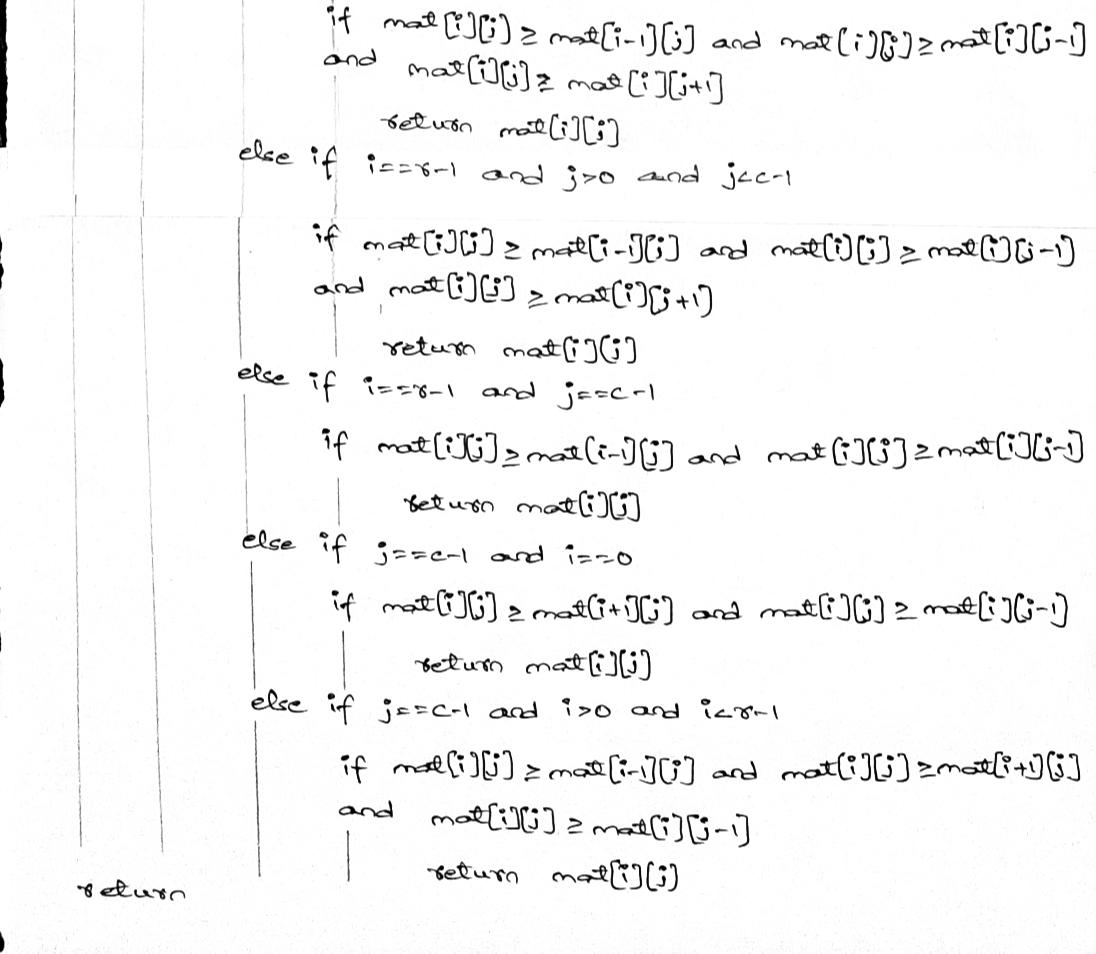 if mat[i][j] ≥ mat[i-1][j] and mat[i][j] ≥ mat[i][j-1]
and mat[i][j] ≥ mat[i][j+1]
return mat[i][j]
else if i==r-1 and j>0 and j<c-1
if mat[i][j] ≥ mat[i-1][j] and mat[i][j] ≥ mat[i][j-1]
and mat[i][j] ≥ mat[i][j+1]
return mat[i][j]
else if i==r-1 and j==c-1
if mat[i][j] ≥ mat[i-1][j] and mat[i][j] ≥ mat[i][j-1]
return mat[i][j]
else if j==c-1 and i==0
if mat[i][j] ≥ mat[i+1][j] and mat[i][j] ≥ mat[i][j-1]
return mat[i][j]
else if j==c-1 and i>0 and i<r-1
if mat[i][j] ≥ mat[i-1][j] and mat[i][j] ≥ mat[i+1][j]
and mat[i][j] ≥ mat[i][j-1]
return mat[i][j]
return